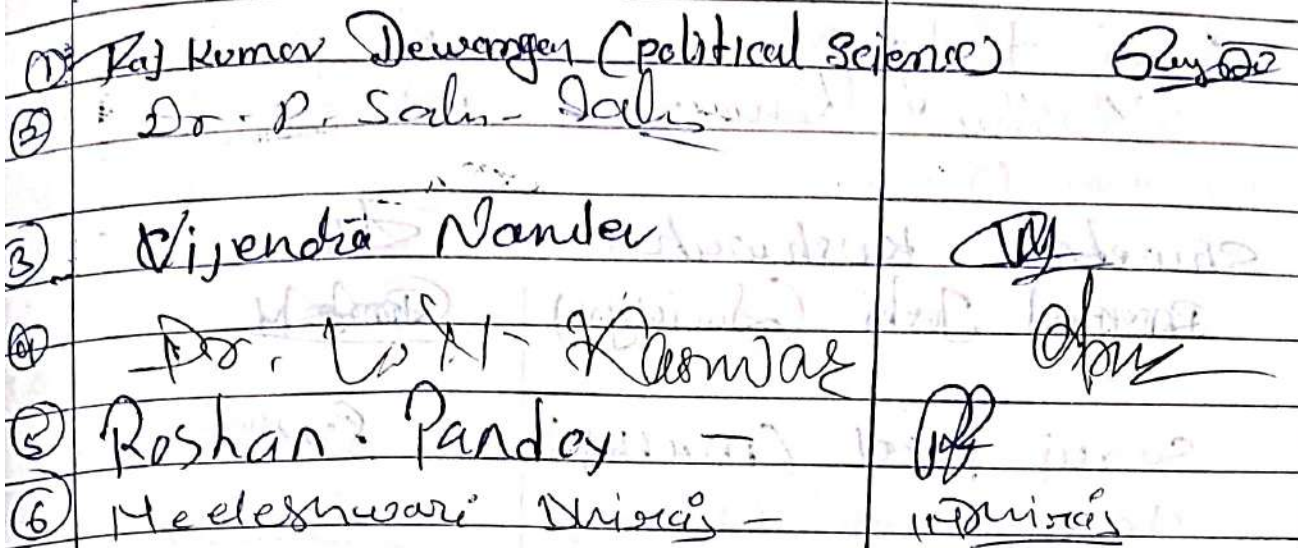 ① Raj Kumar Dewangan (political Science)
② Dr. P. Sahu - Sahu
③ Vijendra Namdev
④ Dr. L. N. Kanwar
⑤ Roshan. Pandey -
⑥ Heeleshwari Dhiraj - HDhiraj